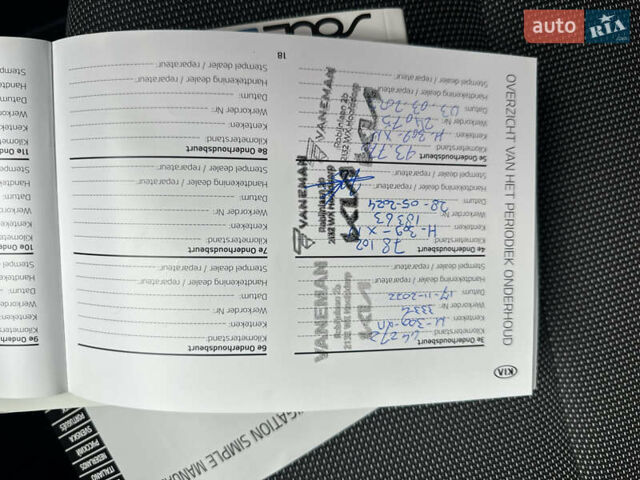 auto RIA.com
SOUL
OVERZICHT VAN HET PERIODIEK ONDERHOUD
KIA
3e Onderhoudsbeurt
Kilometerstand: 64272
Kenteken: H-309-XR
Werkorder Nr: 3334
Datum: 17-11-2022
Handtekening dealer / reparateur:
Stempel dealer / reparateur:
VANEMAN
Robijnlaan 2b
2132 WX Hoofddorp
KIA
4e Onderhoudsbeurt
Kilometerstand: 78102
Kenteken: H-309-X
Werkorder Nr: 18363
Datum: 28-05-2024
Handtekening dealer / reparateur:
Stempel dealer / reparateur:
VANEMAN
Robijnlaan 2b
2132 WX Hoofddorp
KIA
5e Onderhoudsbeurt
Kilometerstand:
Kenteken: H-309-XR
Werkorder Nr: 21075
Datum: 03-03-202
Handtekening dealer / reparateur:
Stempel dealer / reparateur:
VANEMAN
Robijnlaan 2b
2132 WX Hoofddorp
KIA
6e Onderhoudsbeurt
Kilometerstand:
Kenteken:
Werkorder Nr:
Datum:
Handtekening dealer / reparateur:
Stempel dealer / reparateur:
7e Onderhoudsbeurt
Kilometerstand:
Kenteken:
Werkorder Nr:
Datum:
Handtekening dealer / reparateur:
Stempel dealer / reparateur:
8e Onderhoudsbeurt
Kilometerstand:
Kenteken:
Werkorder Nr:
Datum:
Handtekening dealer / reparateur:
Stempel dealer / reparateur:
18
9e Onde
Kilomete
Kenteken
Werkorde
Datum:
Handteke
Stempel
10e On
Kilomete
Kenteken
Werkorde
Datum:
Handteke
Stempel
11e Ond
Kilomete
Kenteken
Werkord
Datum:
Handte
Stempe
IGATION SIMPLE MANUA
ITALIANO
NEDERLANDS
РУССКИЙ
SVENSKA
PORTUGUÊS